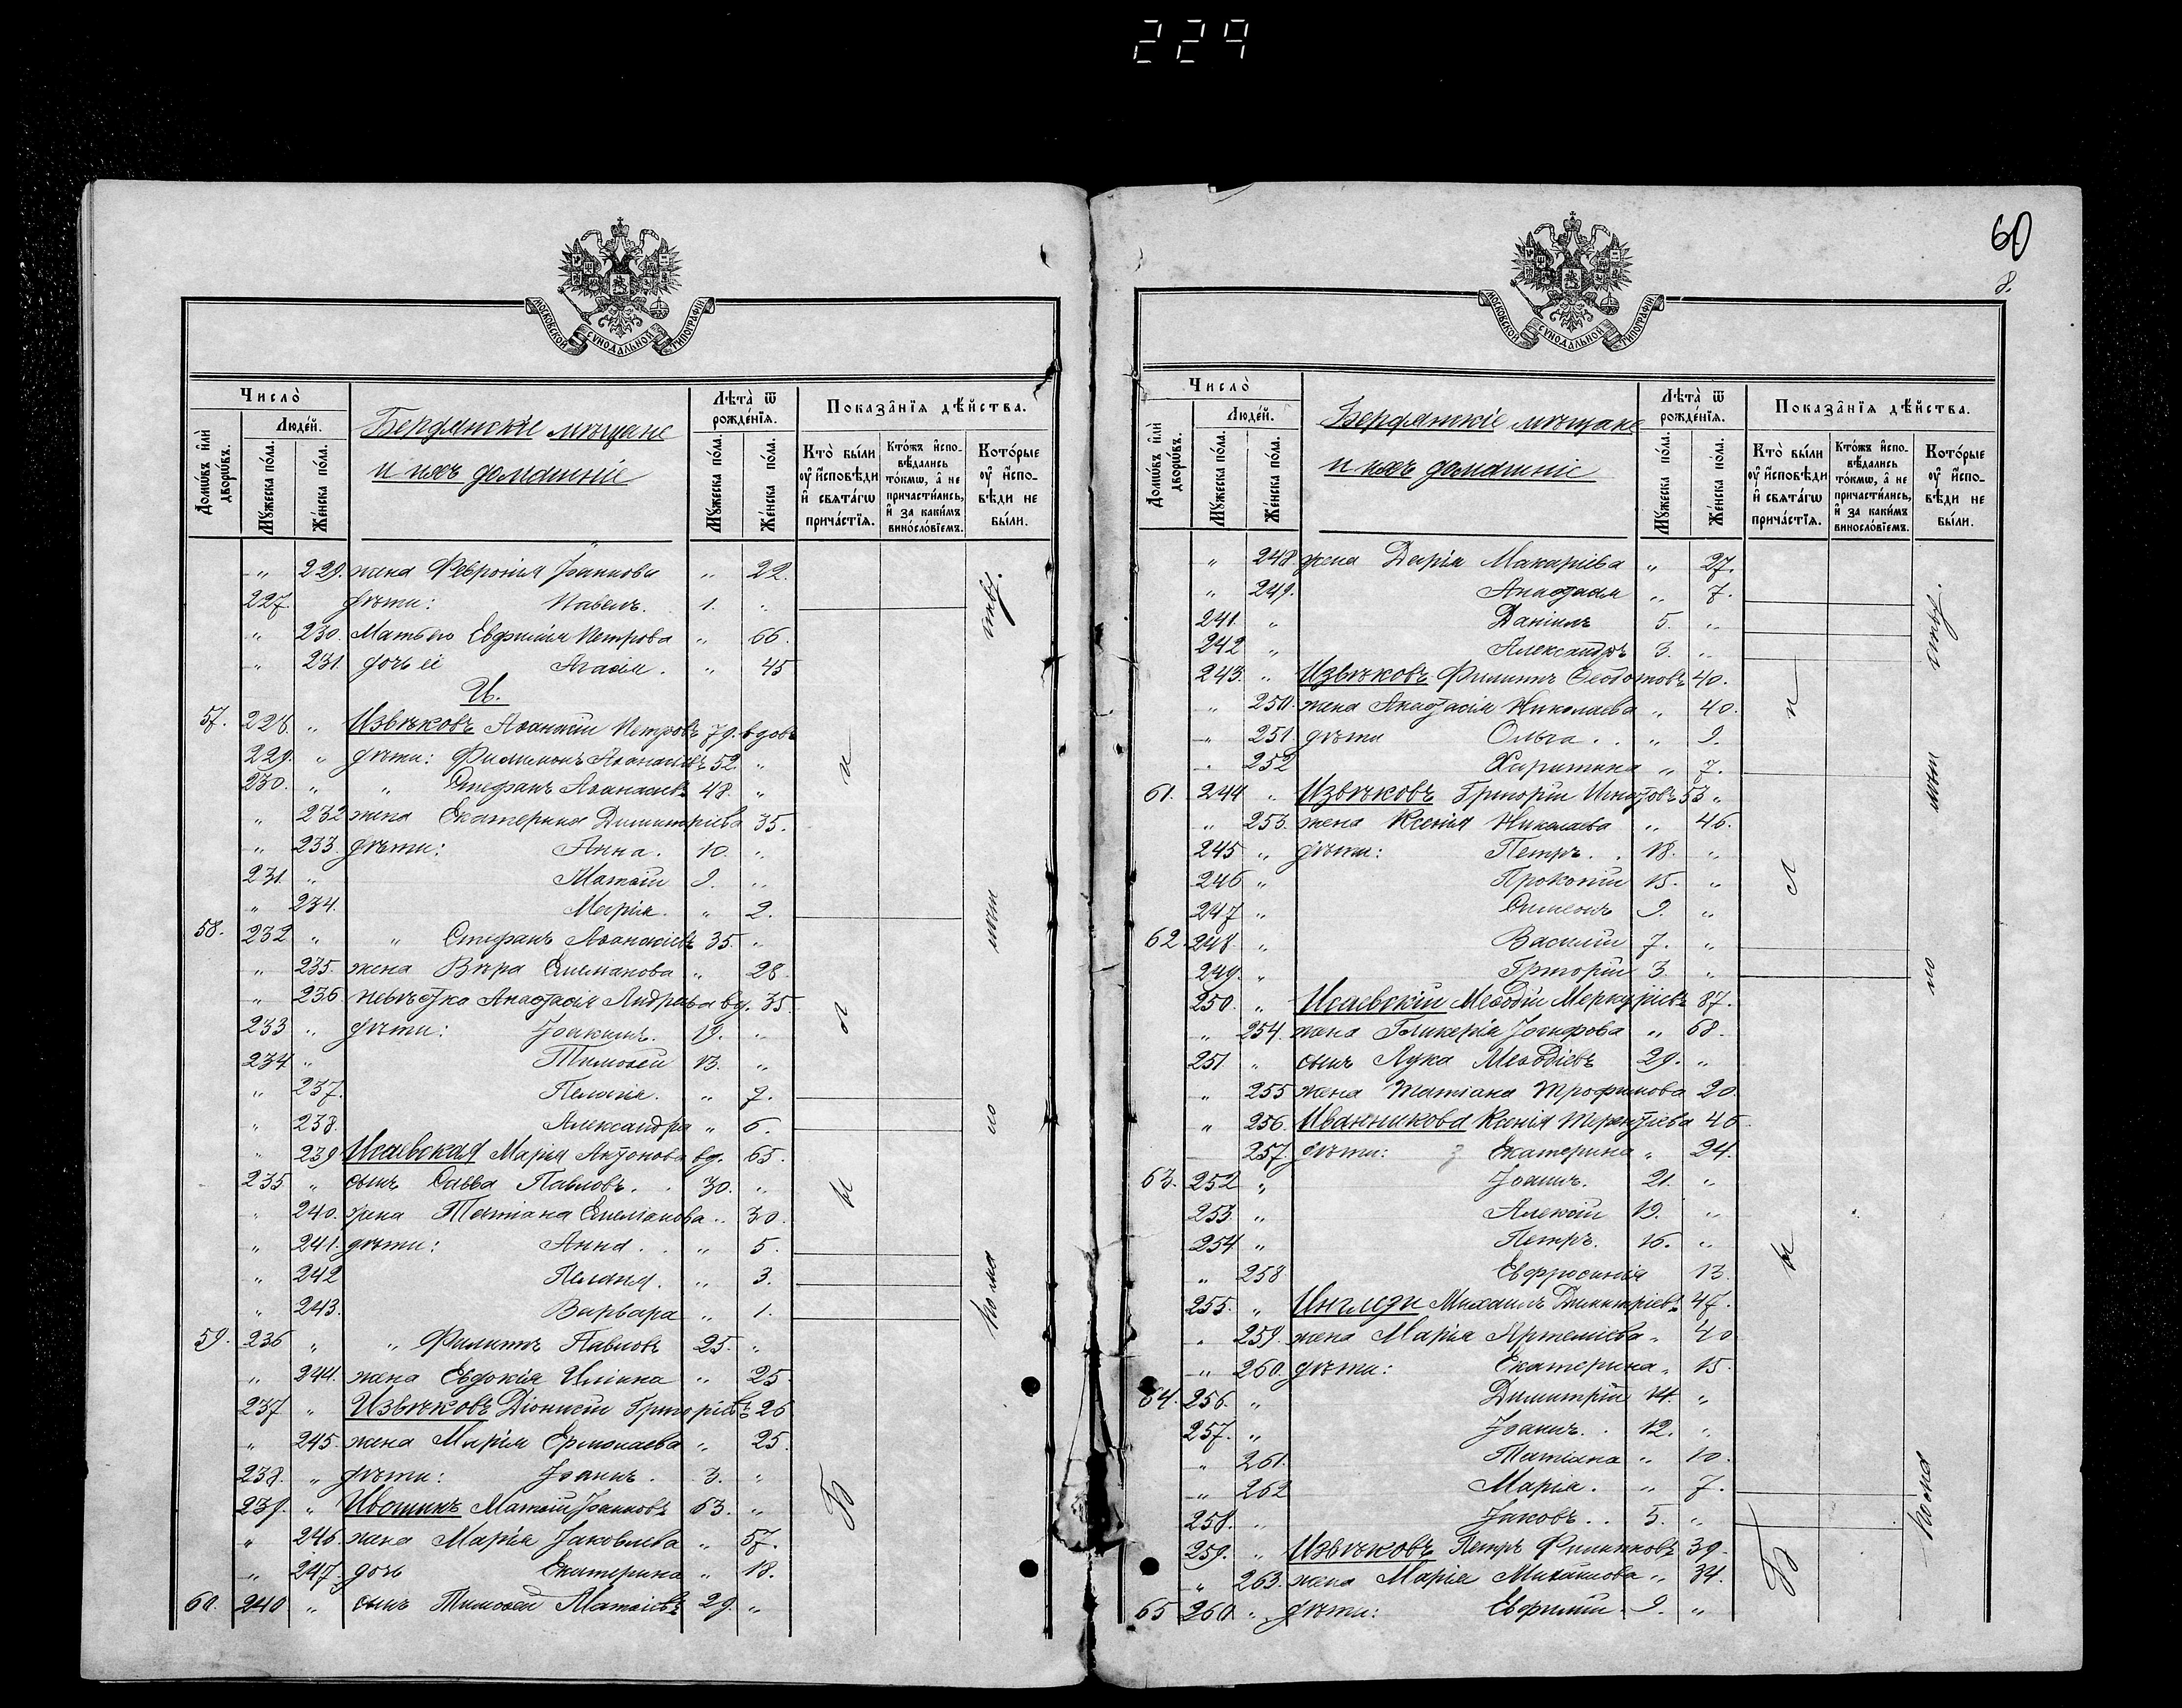 229
МОСКОВСКОЙ СѴНОДАЛЬНОЙ ТИПОГРАФІИ
Число̀
Людей.
Домѡвъ и҆лѝ дворѡвъ.
Мꙋжеска по́ла.
Же́нска по́ла.
Бердянскіе мѣщане
и ихъ домашніе
Лѣта̀ ѿ рожде́нїѧ.
Мꙋжеска по́ла.
Же́нска по́ла.
Показа̑нїѧ дѣ́йства.
Кто̀ бы́ли оу҆ и҆́сповѣди и҆ свѧта́гѡ прича́стїѧ.
Кто́жъ и҆спо-вѣдались то́кмѡ, а҆ не причасти́лись, и҆ за каки́мъ вино́сло́вїемъ.
Кото́рые оу҆ и҆́спо-вѣди не бы́ли.
" 229. жена Февронія Іоаннова " 22.
227. дѣти: Павелъ. 1. "
" 230. Мать его Евфимія Петрова " 66.
" 231. дочь ея Агасія. " 45
И.
57. 228. " Извѣковъ Аѳанасій Петровъ 79. вдовъ
229. " дѣти: Филимонъ Аѳанасіевъ 52. "
230. " " Стефанъ Аѳанасіевъ 48. "
" 232 жена Екатерина Димитріева 35.
" 233. дѣти: Анна. 10. "
231. " Матѳій 9. "
" 234. Марія. " 2.
58. 232 " " Стефанъ Аѳанасіевъ 35. "
" 235. жена Вѣра Емельянова " 28
" 236 невѣстка Анастасія Андреева вд. 35
233 " дѣти: Іоакимъ. 19. "
234 " Тимоѳей 13. "
" 237. Пелагія. " 7.
" 238. Александра " 6.
" 239 Исаевская Марія Антонова вд. 65.
235 " сынъ Савва Павловъ. 30. "
" 240. жена Татіана Емельянова " 30.
" 241. дѣти: Анна. " 5.
" 242 Пелагія. " 3.
" 243. Варвара " 1.
59. 236 " " Филиппъ Павловъ 25. "
" 244. жена Евдокія Иліина " 25
237 " Извѣковъ Діонисій Григоріевъ 26
" 245. жена Марія Ермолаева " 25.
238. " дѣти: Іоаннъ. 3. "
239. " Ивошинъ Матѳій Іоанновъ 63. "
" 246. жена Марія Іаковлева " 57.
" 247. дочь Екатерина " 18.
60. 240 " сынъ Тимоѳей Матѳіевъ 29. "
60
8.
МОСКОВСКОЙ СѴНОДАЛЬНОЙ ТИПОГРАФІИ
Число̀
Людей.
Домѡвъ и҆лѝ дворѡвъ.
Мꙋжеска по́ла.
Же́нска по́ла.
Бердянскіе мѣщане
и ихъ домашніе
Лѣта̀ ѿ рожде́нїѧ.
Мꙋжеска по́ла.
Же́нска по́ла.
Показа̑нїѧ дѣ́йства.
Кто̀ бы́ли оу҆ и҆́сповѣди и҆ свѧта́гѡ прича́стїѧ.
Кто́жъ и҆спо-вѣдались то́кмѡ, а҆ не причасти́лись, и҆ за каки́мъ вино́сло́вїемъ.
Кото́рые оу҆ и҆́спо-вѣди не бы́ли.
" 248. жена Дарія Макаріева " 27.
" 249. Анастасія " 7.
241. " Даніилъ 5. "
242 " Александръ 3. "
243. " Извѣковъ Филиппъ 40.
" 250. жена Анастасія Николаева " 40.
" 251. дѣти Ольга. " 9.
" 252 Харитина " 7.
61. 244 " Извѣковъ Григорій Игнатовъ 53 "
" 253. жена Ксенія Николаева " 46.
245 " дѣти: Петръ. 18. "
246 " Прокопій 15. "
247 " Симеонъ 9. "
62. 248. " Василій 7. "
249. " Григорій 3. "
250. " Исаевскій Меѳодій Меркуріевъ 87.
" 254. жена Гликерія Іосифова " 68.
251. " сынъ Лука Меѳодіевъ 29. "
" 255 жена Татіана Трофимова 20.
" 256. Иванникова Ксенія Терентіева 46.
257 дѣти: Екатерина " 24.
63. 252 " Іоаннъ. 21. "
253. " Алексій 19. "
254 " Петръ. 16. "
" 258 Евфросинія 13.
255. " Инглези Михаилъ Димитріевъ 47.
" 259. жена Марія Артеміева " 40
" 260. дѣти: Екатерина " 15.
64. 256. " Димитрій 14. "
257. " Іоаннъ. 12. "
" 261. Татіана " 10.
" 262 Марія. " 7.
258. " Іаковъ. 5. "
259. " Извѣковъ Петръ Филипповъ 39.
" 263. жена Марія Михаилова " 34.
65 260. " дѣти: Евфимій 9. "